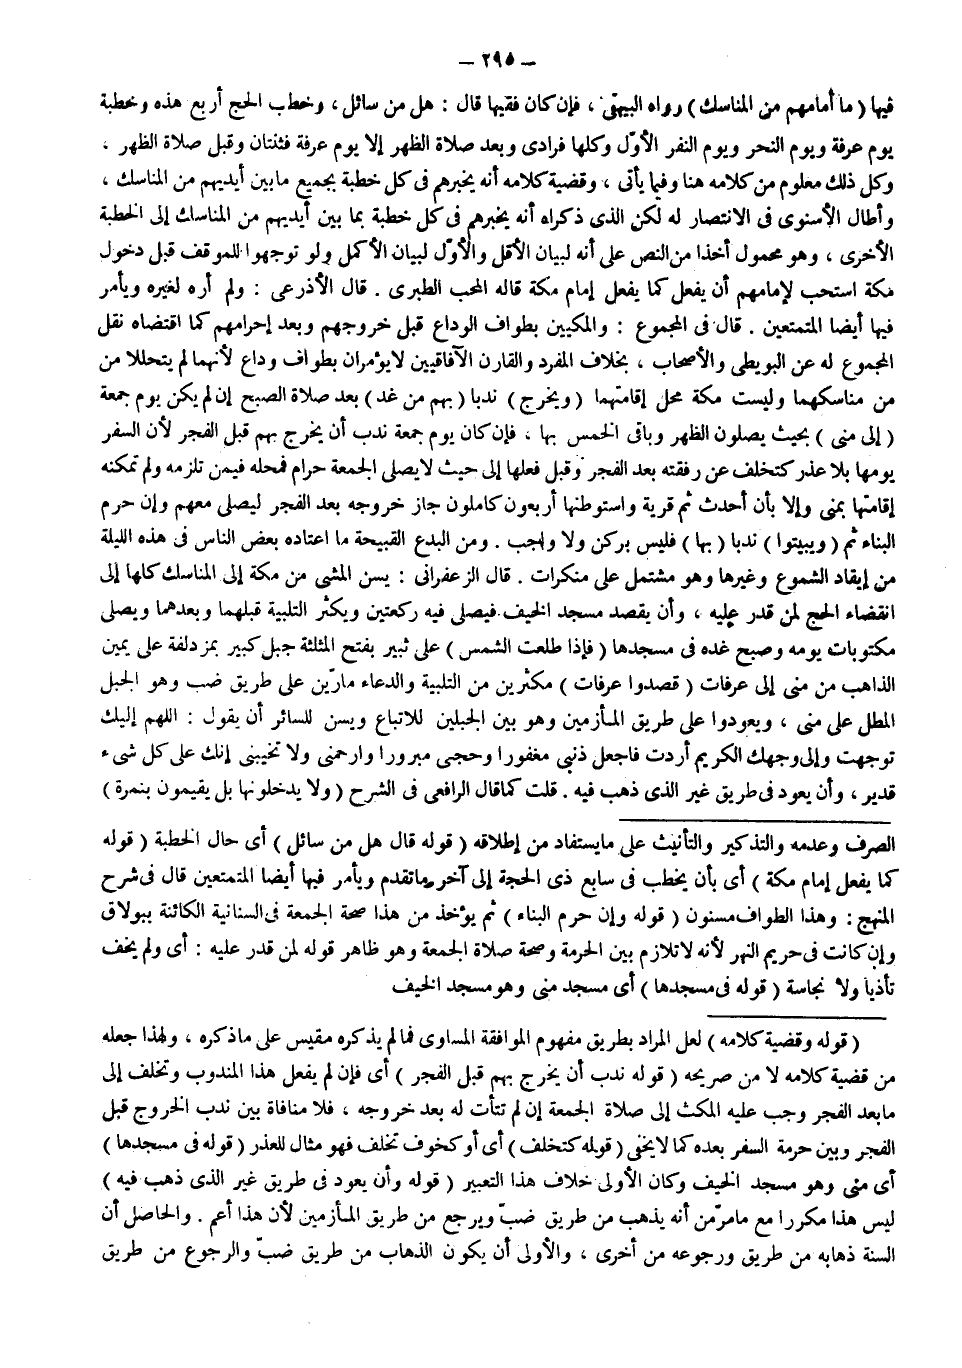 — ٢٩٥ —
فيها ( ما أمامهم من المناسك ) رواه البيهقى ، فإن كان فقيها قال : هل من سائل ، وخطب الحج أربع هذه وخطبة
يوم عرفة ويوم النحر ويوم النفر الأوّل وكلها فرادى وبعد صلاة الظهر إلا يوم عرفة فثنتان وقبل صلاة الظهر ،
وكل ذلك معلوم من كلامه هنا وفيما يأتى ، وقضية كلامه أنه يخبرهم فى كل خطبة بجميع مابين أيديهم من المناسك ،
وأطال الأسنوى فى الانتصار له لكن الذى ذكراه أنه يخبرهم فى كل خطبة بما بين أيديهم من المناسك إلى الخطبة
الأخرى ، وهو محمول أخذا من النص على أنه لبيان الأقل والأوّل لبيان الأكمل ولو توجهوا للموقف قبل دخول
مكة استحب لإمامهم أن يفعل كما يفعل إمام مكة قاله المحب الطبرى . قال الأذرعى : ولم أره لغيره ويأمر
فيها أيضا المتمتعين . قال فى المجموع : والمكيين بطواف الوداع قبل خروجهم وبعد إحرامهم كما اقتضاه نقل
المجموع له عن البويطى والأصحاب ، بخلاف المفرد والقارن الآفاقيين لايؤمران بطواف وداع لأنهما لم يتحللا من
من مناسكهما وليست مكة محل إقامتهما ( ويخرج ) ندبا ( بهم من غد ) بعد صلاة الصبح إن لم يكن يوم جمعة
( إلى منى ) بحيث يصلون الظهر وباقى الخمس بها ، فإن كان يوم جمعة ندب أن يخرج بهم قبل الفجر لأن السفر
يومها بلا عذر كتخلف عن رفقته بعد الفجر وقبل فعلها إلى حيث لايصلى الجمعة حرام فمحله فيمن تلزمه ولم تمكنه
إقامتها بمنى وإلا بأن أحدث ثم قرية واستوطنها أربعون كاملون جاز خروجه بعد الفجر ليصلى معهم وإن حرم
البناء ثم ( ويبيتوا ) ندبا ( بها ) فليس بركن ولا واجب . ومن البدع القبيحة ما اعتاده بعض الناس فى هذه الليلة
من إيقاد الشموع وغيرها وهو مشتمل على منكرات . قال الزعفرانى : يسن المشى من مكة إلى المناسك كلها إلى
انقضاء الحج لمن قدر عليه ، وأن يقصد مسجد الخيف فيصلى فيه ركعتين ويكثر التلبية قبلهما وبعدهما ويصلى
مكتوبات يومه وصبح غده فى مسجدها ( فإذا طلعت الشمس ) على ثبير بفتح المثلثة جبل كبير بمزدلفة على يمين
الذاهب من منى إلى عرفات ( قصدوا عرفات ) مكثرين من التلبية والدعاء مارّين على طريق ضب وهو الجبل
المطل على منى ، ويعودوا على طريق المأزمين وهو بين الجبلين للاتباع ويسن للسائر أن يقول : اللهم إليك
توجهت وإلى وجهك الكريم أردت فاجعل ذنبى مغفورا وحجى مبرورا وارحمنى ولا تخيبنى إنك على كل شىء
قدير ، وأن يعود فى طريق غير الذى ذهب فيه . قلت كما قال الرافعى فى الشرح ( ولا يدخلونها بل يقيمون بنمرة )
الصرف وعدمه والتذكير والتأنيث على مايستفاد من إطلاقه ( قوله قال هل من سائل ) أى حال الخطبة ( قوله
كما يفعل إمام مكة ) أى بأن يخطب فى سابع ذى الحجة إلى آخر ماتقدم ويأمر فيها أيضا المتمتعين قال فى شرح
المنهج : وهذا الطواف مسنون ( قوله وإن حرم البناء ) ثم يؤخذ من هذا صحة الجمعة فى السنانية الكائنة ببولاق
وإن كانت فى حريم النهر لأنه لاتلازم بين الحرمة وصحة صلاة الجمعة وهو ظاهر قوله لمن قدر عليه : أى ولم يخف
تأذيا ولا نجاسة ( قوله فى مسجدها ) أى مسجد منى وهو مسجد الخيف
( قوله وقضية كلامه ) لعل المراد بطريق مفهوم الموافقة المساوى فما لم يذكره مقيس على ماذكره ، ولهذا جعله
من قضية كلامه لا من صريحه ( قوله ندب أن يخرج بهم قبل الفجر ) أى فإن لم يفعل هذا المندوب وتخلف إلى
مابعد الفجر وجب عليه المكث إلى صلاة الجمعة إن لم تتأت له بعد خروجه ، فلا منافاة بين ندب الخروج قبل
الفجر وبين حرمة السفر بعده كما لايخفى ( قوله كتخلف ) أى أو كخوف تخلف فهو مثال للعذر ( قوله فى مسجدها )
أى منى وهو مسجد الخيف وكان الأولى خلاف هذا التعبير ( قوله وأن يعود فى طريق غير الذى ذهب فيه )
ليس هذا مكررا مع مامرّ من أنه يذهب من طريق ضبّ ويرجع من طريق المأزمين لأن هذا أعم . والحاصل أن
السنة ذهابه من طريق ورجوعه من أخرى ، والأولى أن يكون الذهاب من طريق ضبّ والرجوع من طريق